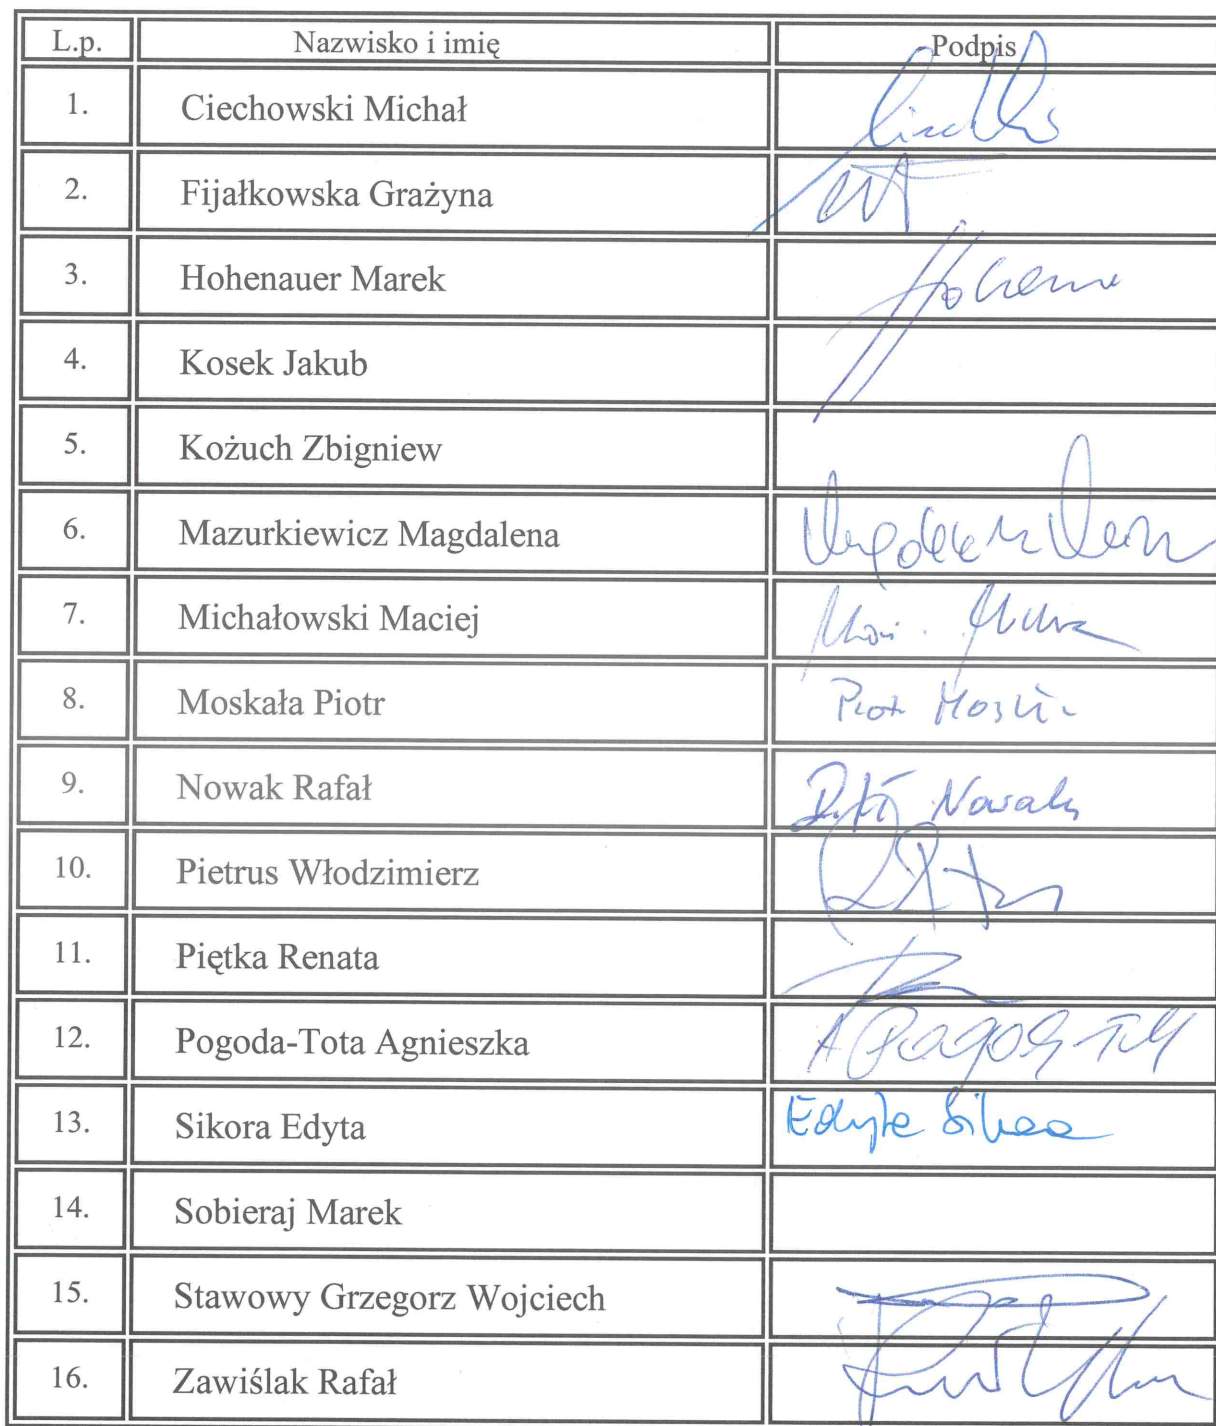 L.p. Nazwisko i imię Podpis
1. Ciechowski Michał
2. Fijałkowska Grażyna
3. Hohenauer Marek
4. Kosek Jakub
5. Kożuch Zbigniew
6. Mazurkiewicz Magdalena
7. Michałowski Maciej
8. Moskała Piotr Piotr
9. Nowak Rafał Rafał Nowak
10. Pietrus Włodzimierz
11. Piętka Renata
12. Pogoda-Tota Agnieszka A Pogoda-
13. Sikora Edyta Edyta Sikora
14. Sobieraj Marek
15. Stawowy Grzegorz Wojciech
16. Zawiślak Rafał